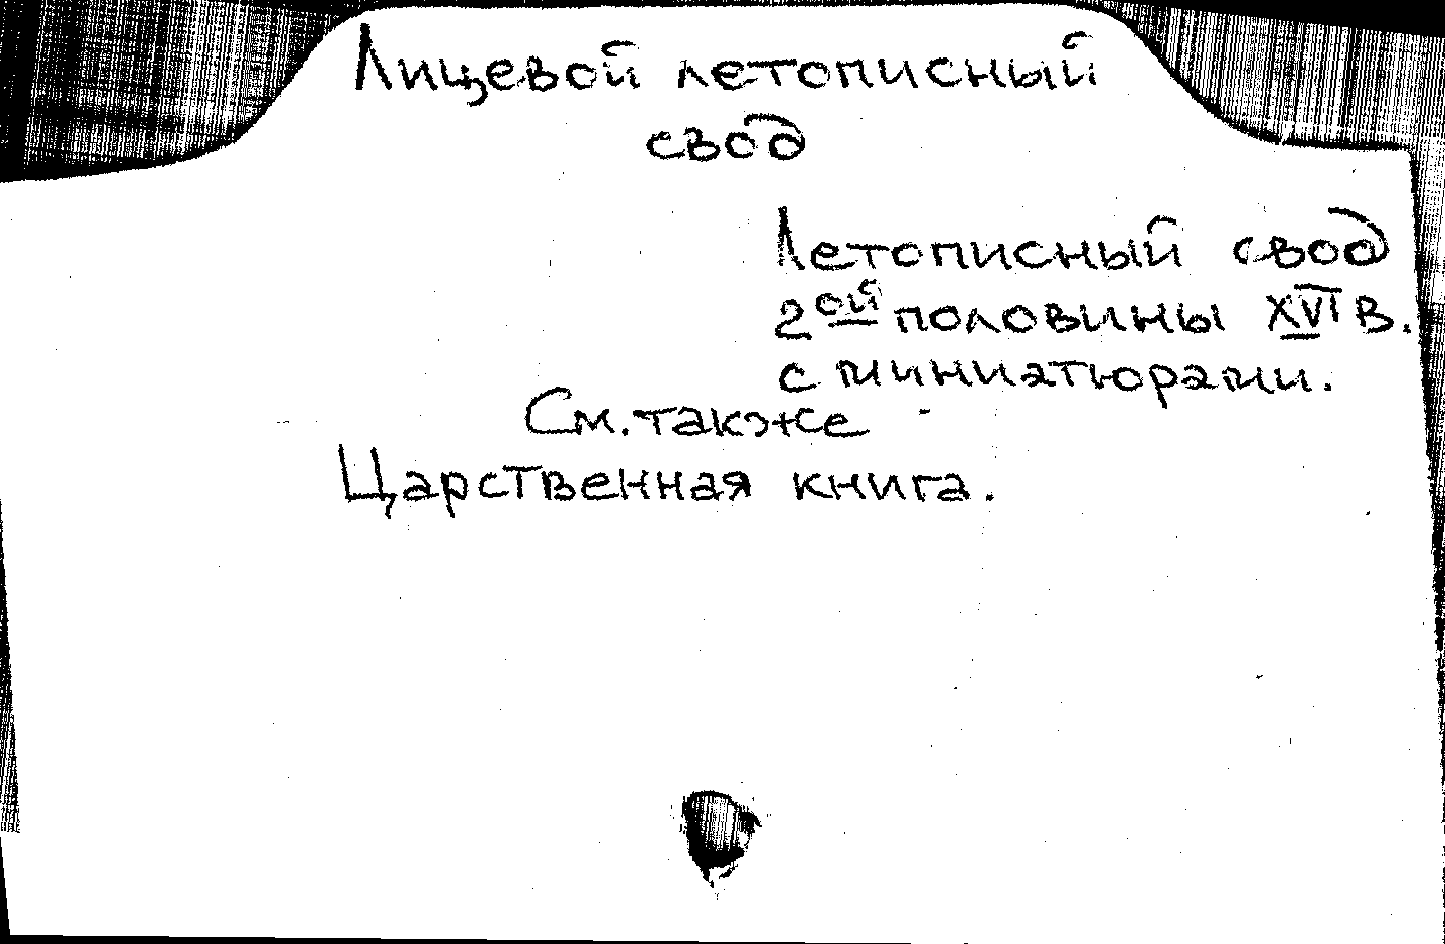 Лицевой летописный
свод
Летописный свод
2ой половины XVI в.
с миниатюрами.
См. также
Царственная книга.